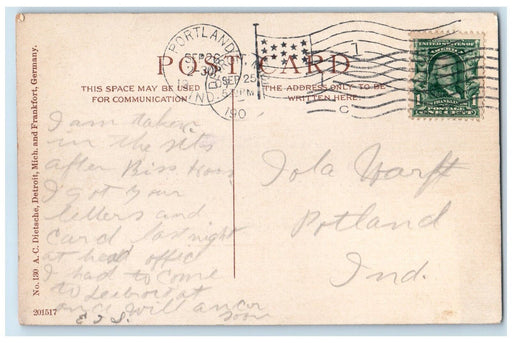 POST CARD
THIS SPACE MAY BE USED
FOR COMMUNICATION
THE ADDRESS ONLY TO BE
WRITTEN HERE
PORTLAND
IND.
SEP 25
190
1
C
UNITED STATES OF
FRANKLIN
ONE CENT
No. 130 A. C. Dietsche, Detroit, Mich. and Frankfort, Germany.
201517
I am taken
in the
after
I got your
letters and
Card last night
at head office
I had to come
to at
once will
soon
E J S.
Iola Warft
Potland
Ind.